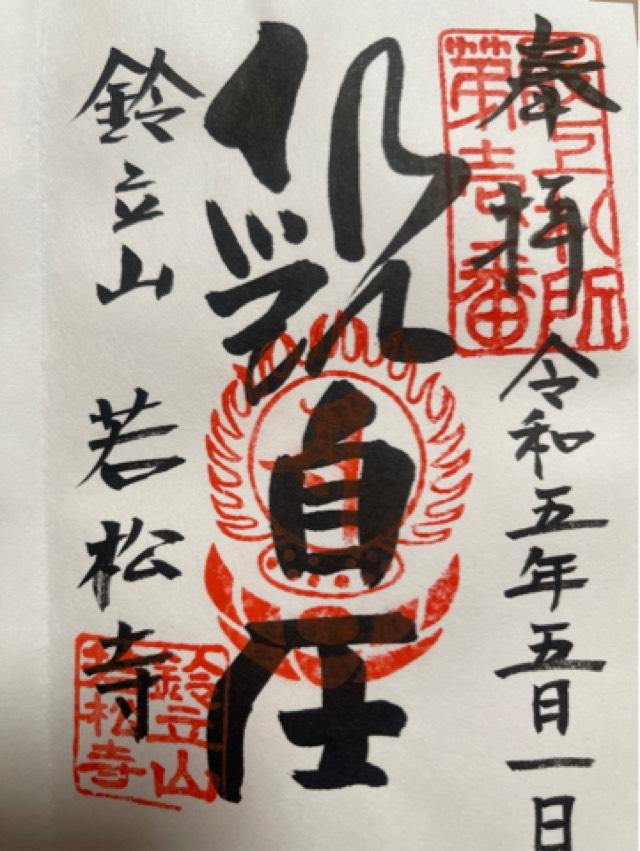 奉拝 令和五年五月一日
最上札所
第壱番
観自在
鈴立山 若松寺
鈴立山
若松寺